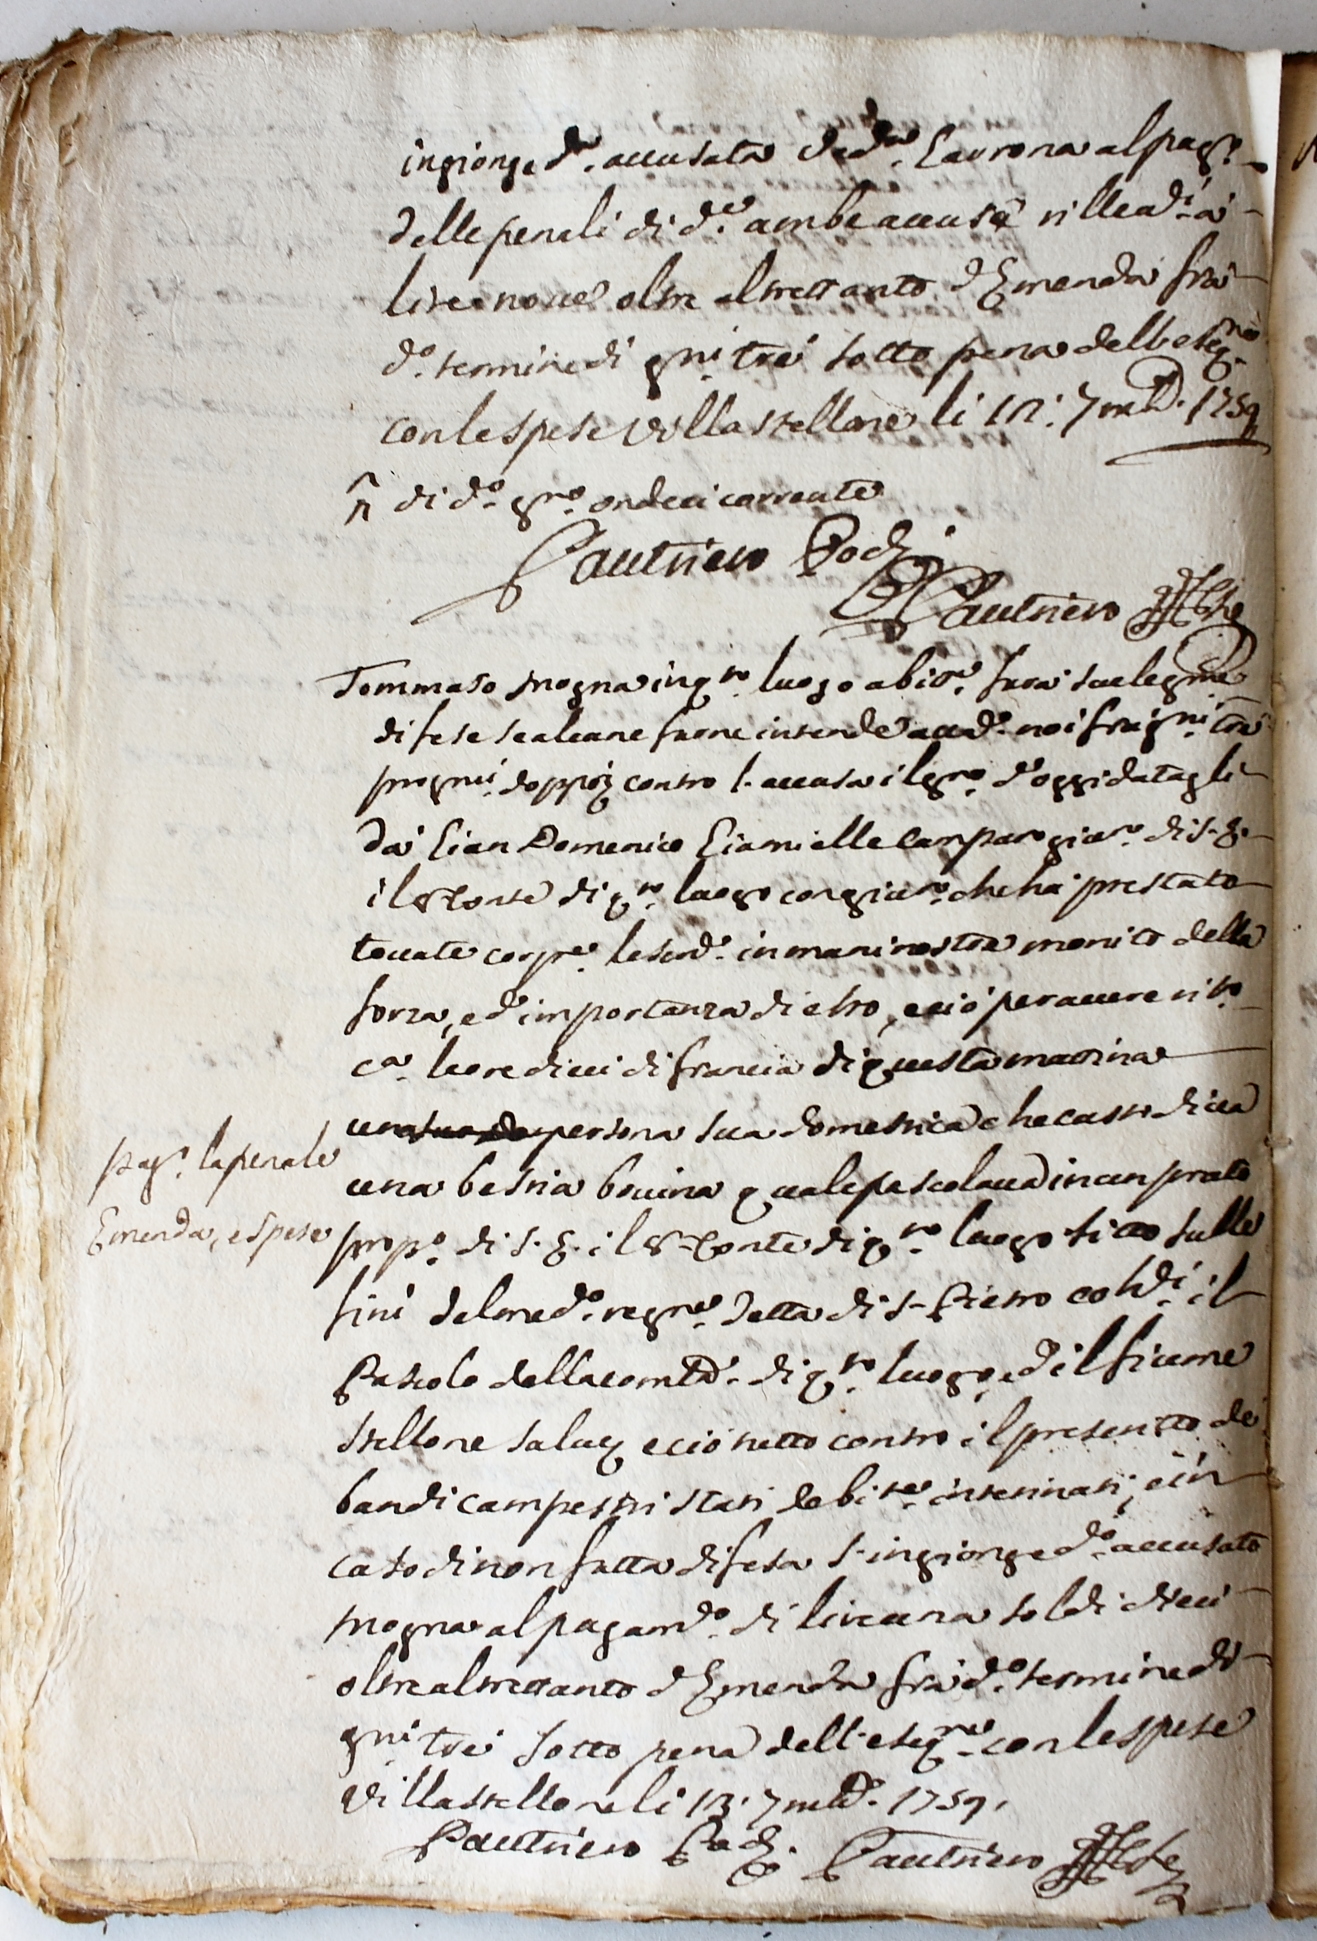 ingionge d.ª accusata ded.ª Lavrona al pag.º
delle penali di d.e ambe accuse rillev.ti à
lire nove oltre altrettanto d'Emenda frà
d.º termine di gni. trè sotto pena dell'eseq.ne
con le spese villastellone li 12: 7mbr. 1759
di d.º gno. ondeci corrente
Pautriero Pod.
Pautriero
Tommaso mogna in q.to luogo abit.e farà sue legme
difese se alcune farne intende avd. noi frà gni. trè
progni. doppo contro l'accusa il gno. d'oggi datagli
da Gian Domenico Giamielle Camparo giur.º di S. E.
il S. Conte di q.to luogo con giur.º che ha prestato
toccate corp.e le scrd.e in mani nostre monito della
forza, ed importanza di esso, e ciò per avere rit.º
c.ª le ore dieci di francia di questa mattina
una persona sua domestica che custodiva
una bestia bovina quale pascolava in un prato
prop.º di S. E. il S. Conte di q.to luogo sitto sulle
fini del med.º reg.ne detta di S. Pietro coh.ti il
Pascolo della comtà. di q.to luogo, ed il fiume
Stellone salvo e ciò netto contro il presentto de
bandi campestri stati debit.e interinati, e in
caso di non fatta difesa s'ingionge d.º accusato
mogna al pagam.to di lire una soldi dieci
oltre altrettanto d'Emenda frà d.º termine di
gni. trei sotto pena dell'eseq.ne con le spese
villastellone li 12. 7mbr. 1759.
Pautriero Pod.
Pautriero
pag.º la penale
Emenda, e spese